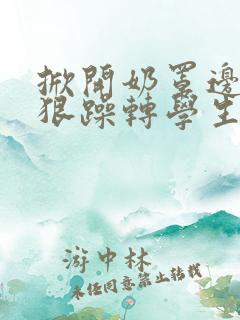 掀開奶罩邊
狠躁轉學生
游中林
未任同意禁止转载